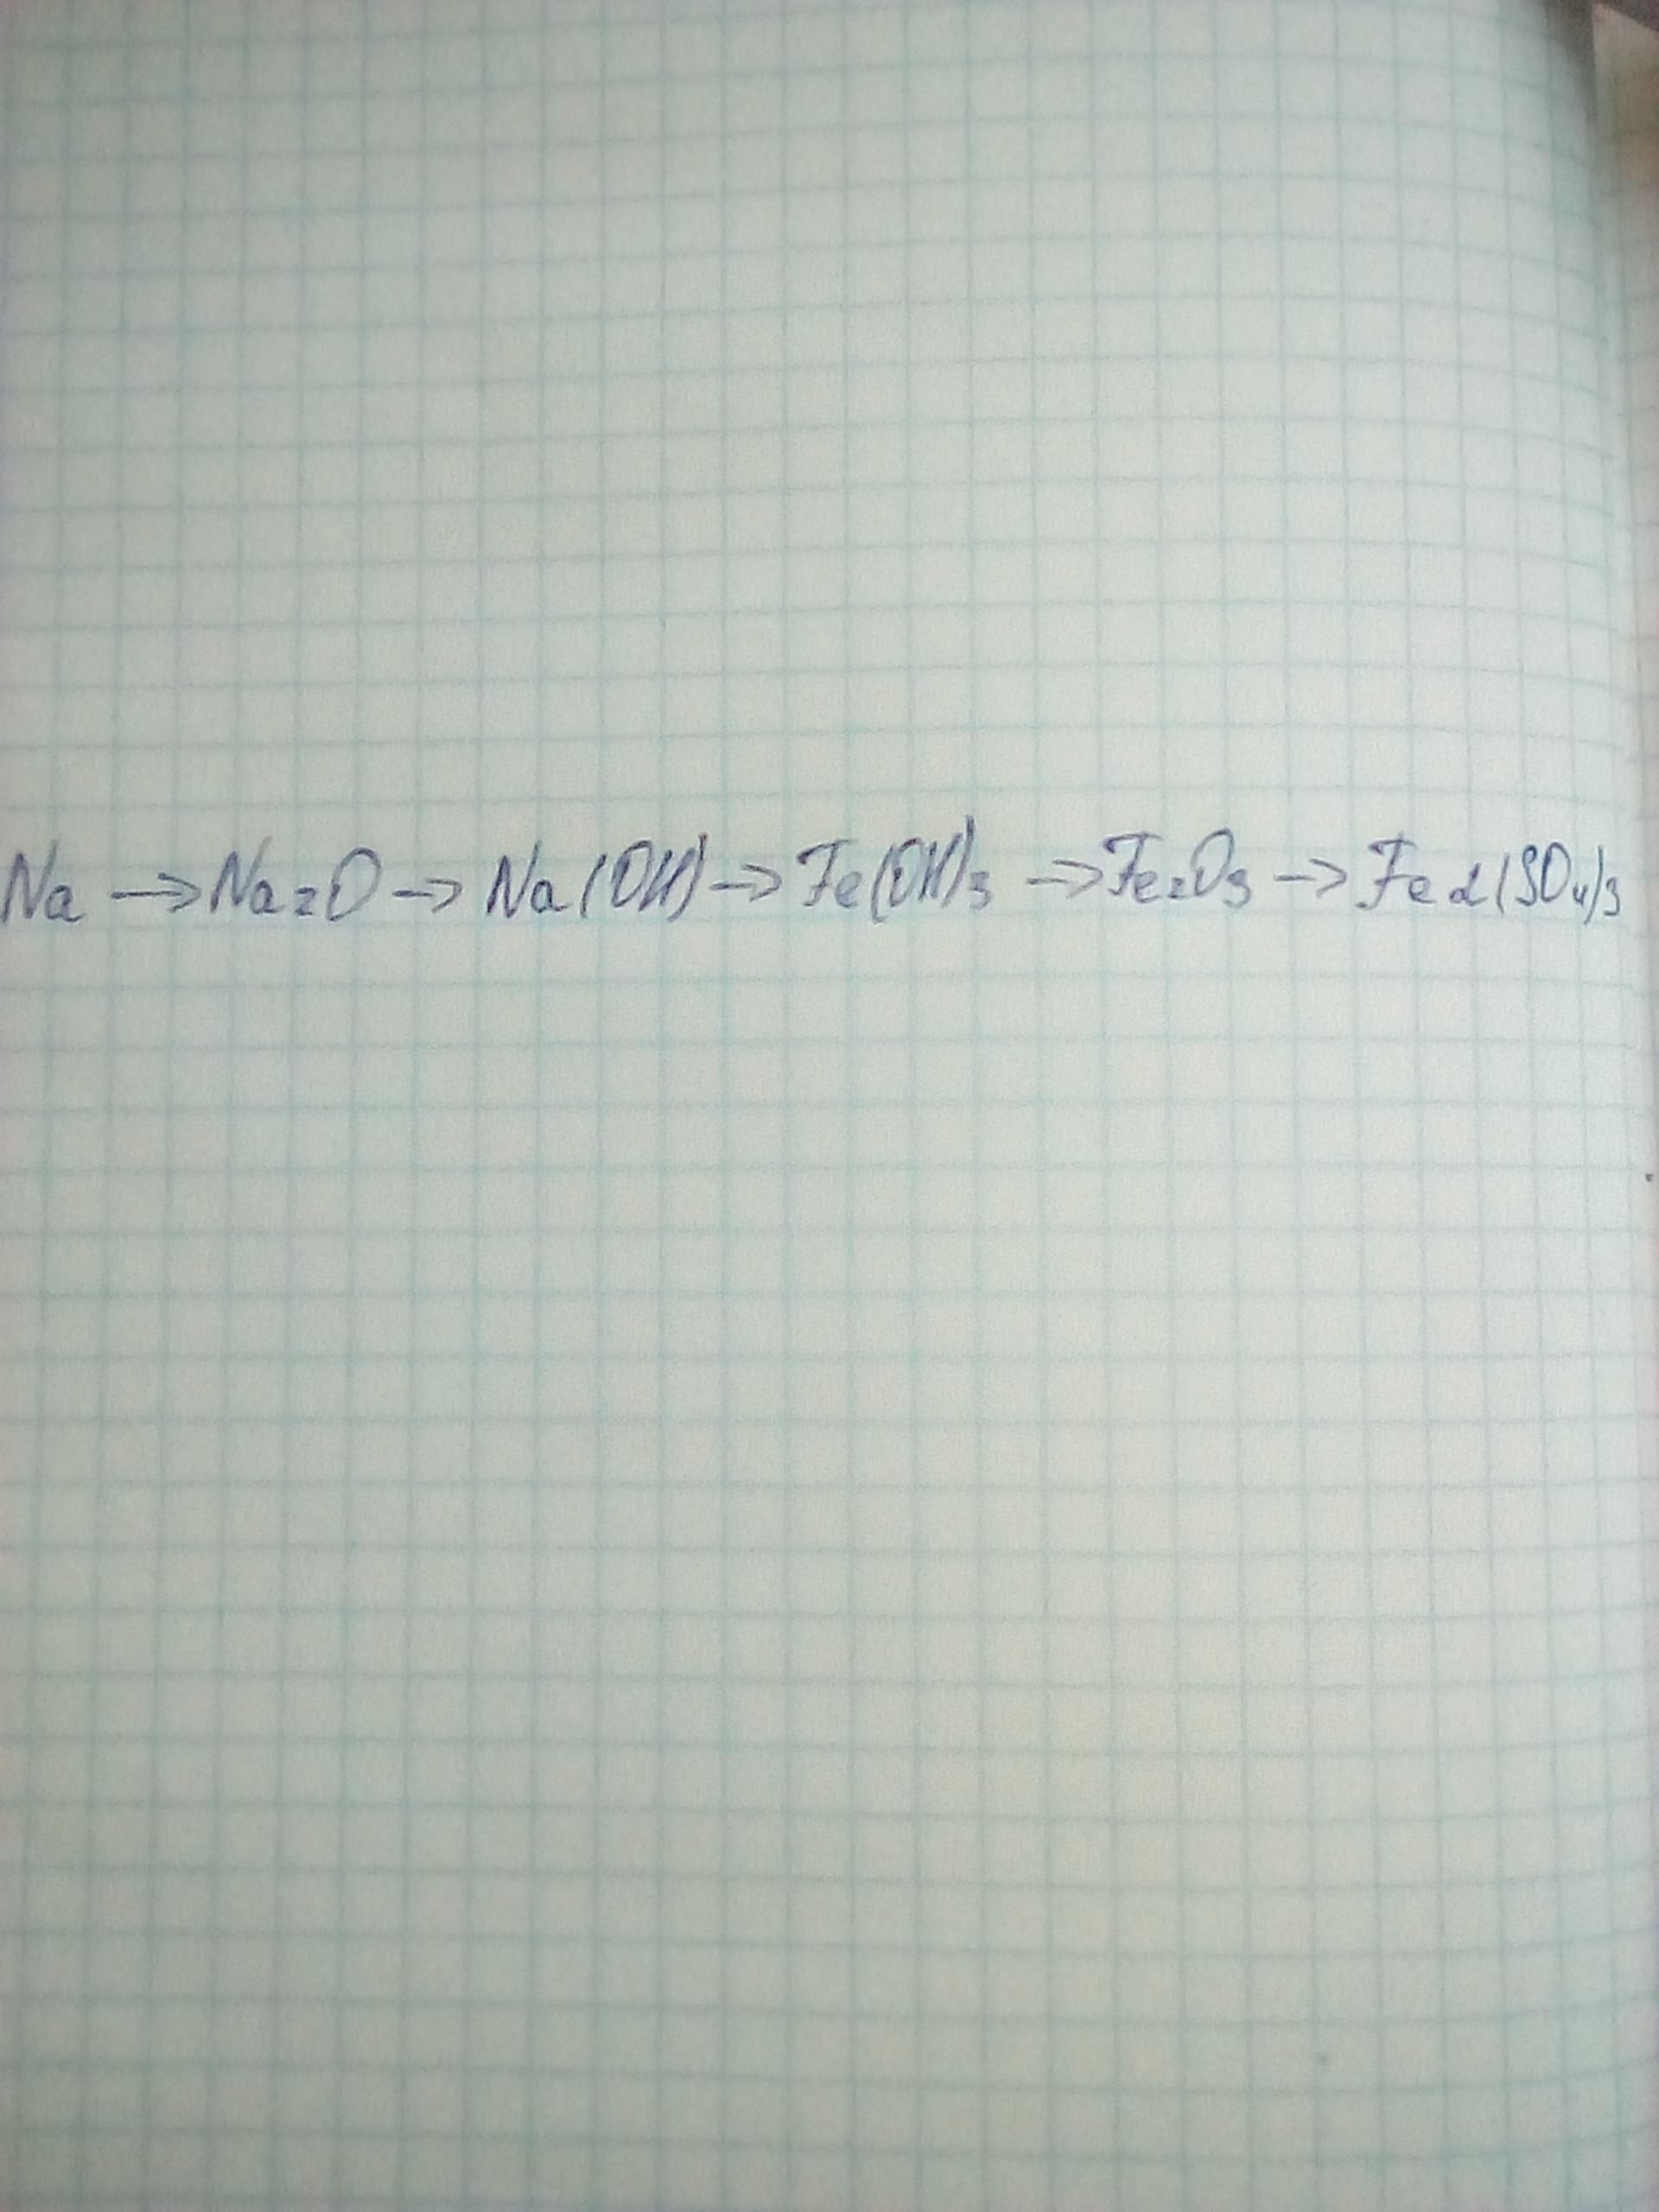 Na → Na₂O → Na(OH) → Fe(OH)₃ → Fe₂O₃ → Fe₂(SO₄)₃